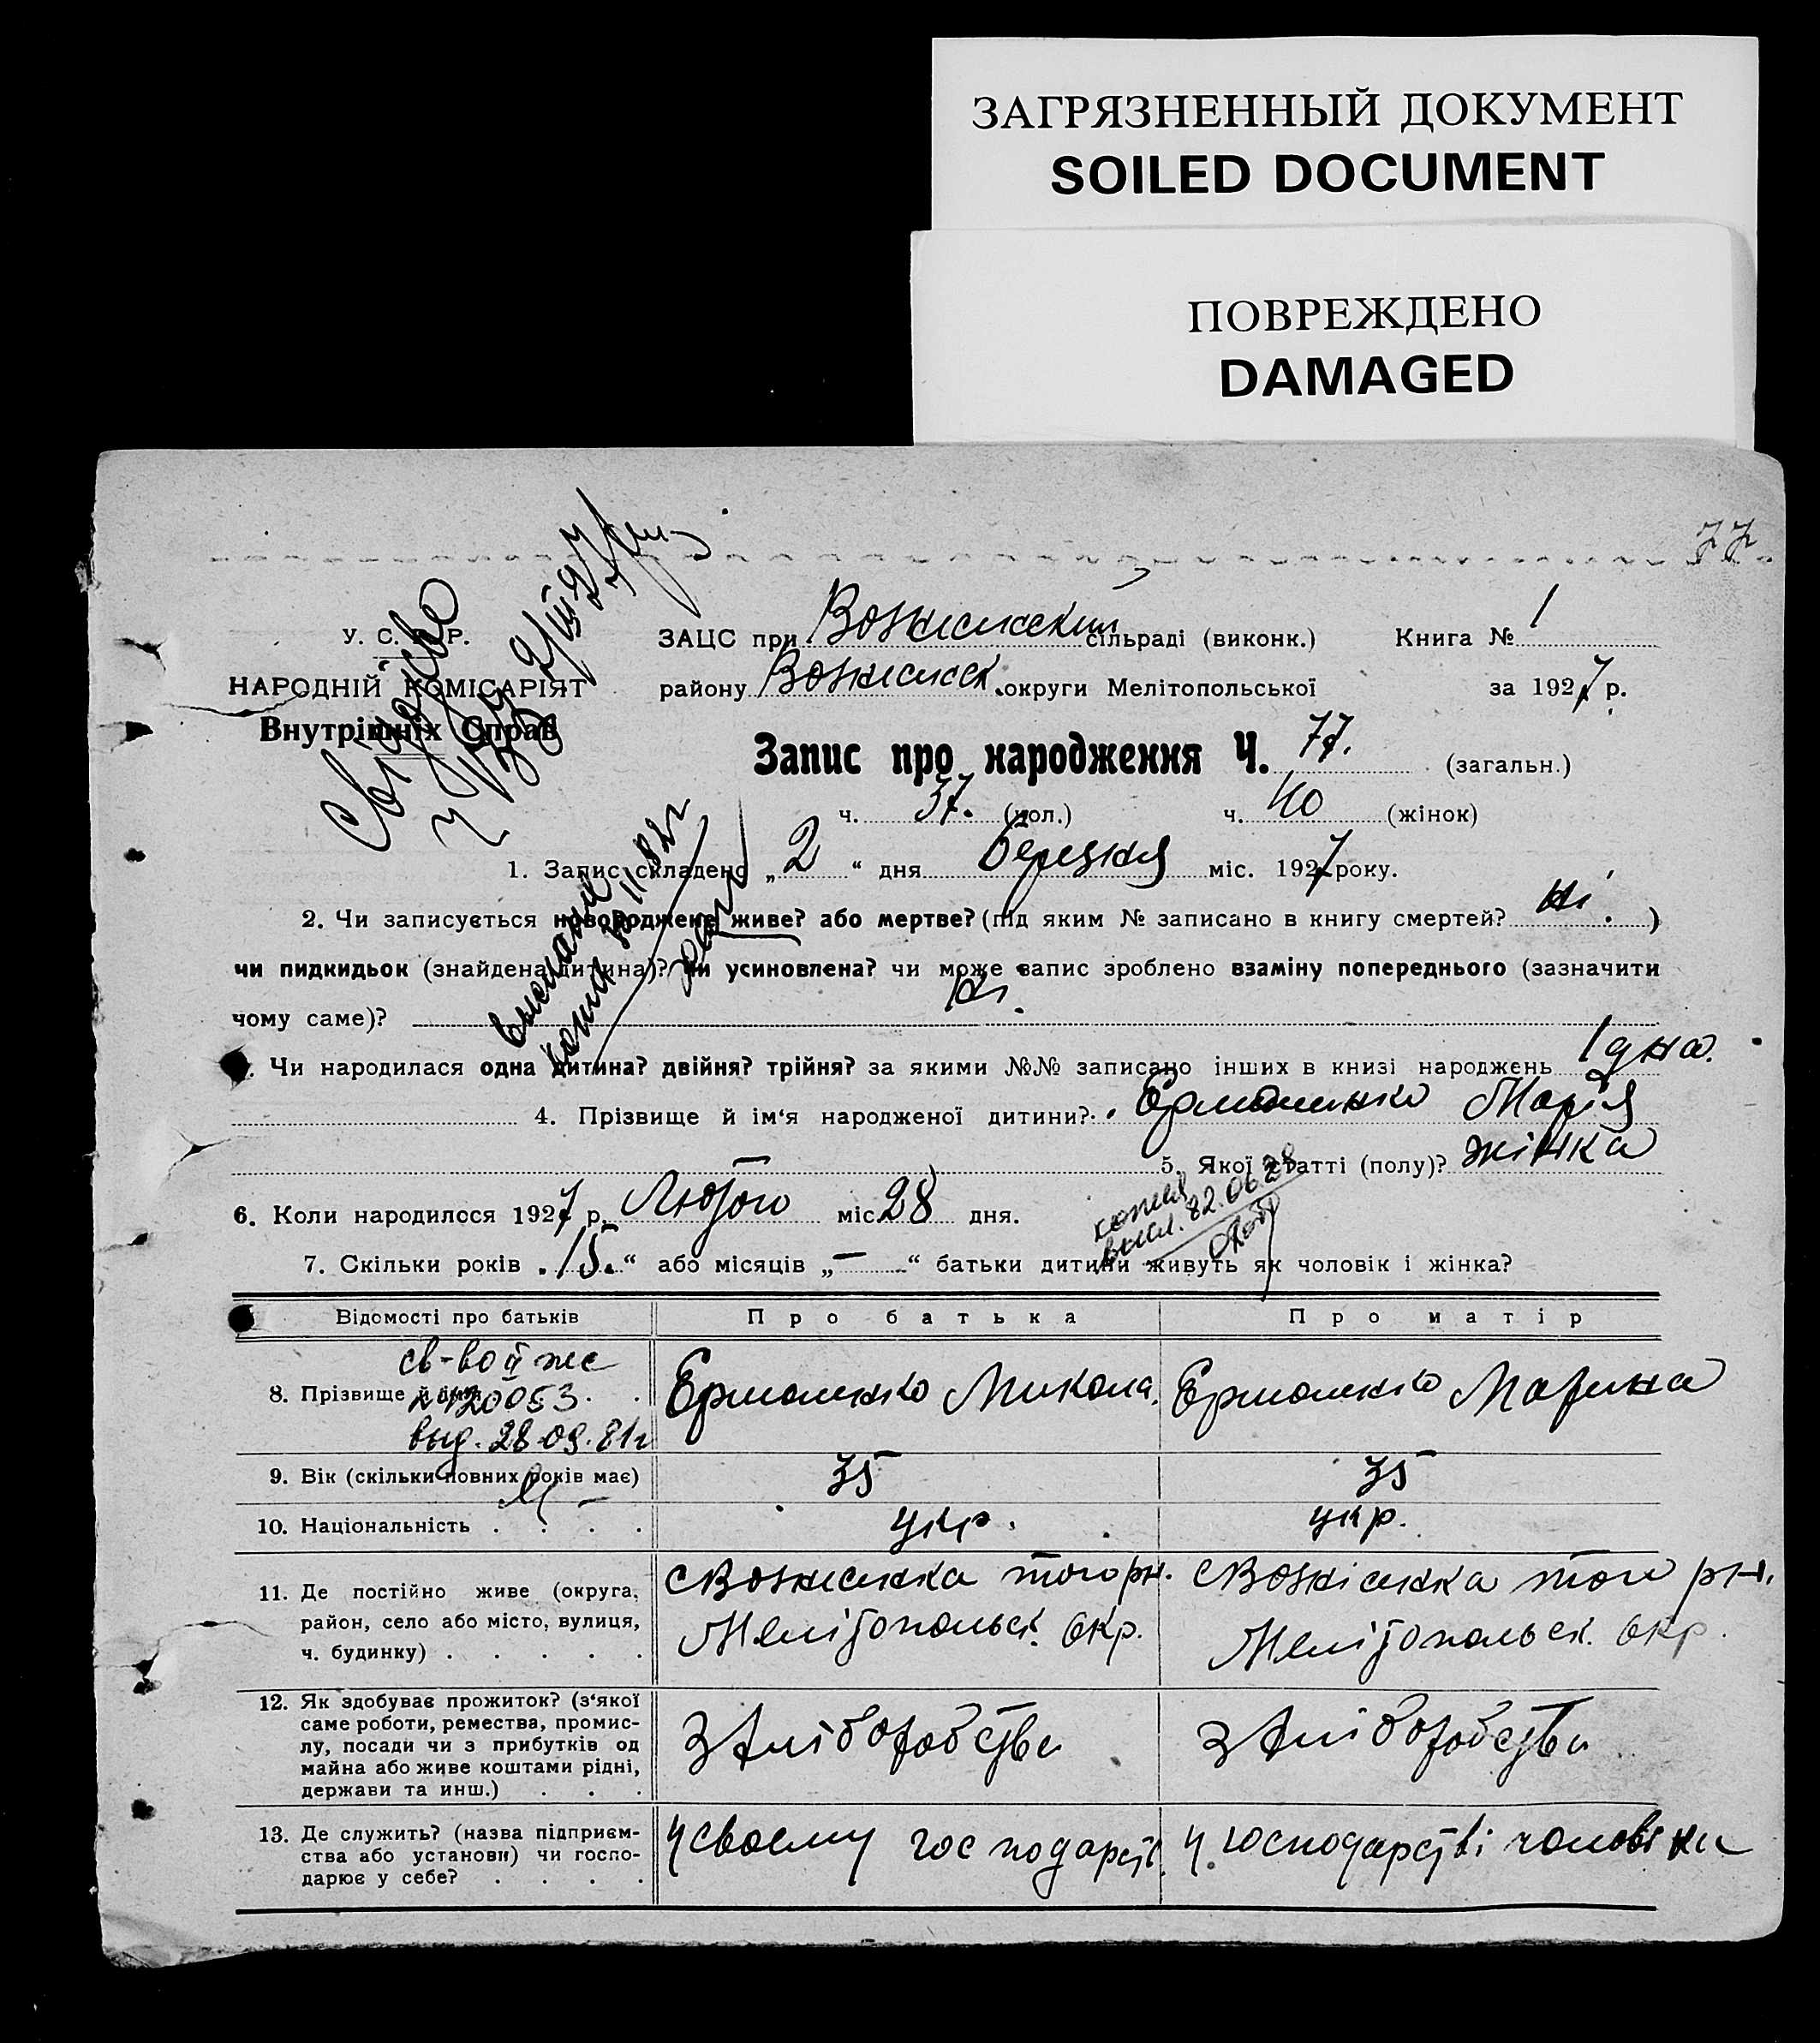 ЗАГРЯЗНЕННЫЙ ДОКУМЕНТ
SOILED DOCUMENT
ПОВРЕЖДЕНО
DAMAGED
77
У. С. Р. Р.
НАРОДНІЙ КОМІСАРІЯТ
Внутрішніх Справ
ЗАЦС при сільраді (виконк.) Книга № 1
району округи Мелітопольської за 1927 р.
Запис про народження Ч. 77. (загальн.)
ч. 37. (чол.) ч. 40 (жінок)
1. Запис складено „2“ дня березня міс. 1927 року.
2. Чи записується новороджене живе? або мертве? (під яким № записано в книгу смертей? ні.)
чи пидкидьок (знайдена дитина)? чи усиновлена? чи може запис зроблено взаміну попереднього (зазначити
чому саме)? ні.
Чи народилася одна дитина? двійня? трійня? за якими №№ записано інших в книзі народжень 1 дна.
4. Прізвище й ім‘я народженої дитини? Марія
5. Якої статті (полу)? жінка
6. Коли народилося 1927 р. Лютого міс. 28 дня.
копия
высл. 82.06.28
7. Скільки років „15.“ або місяців „—“ батьки дитини живуть як чоловік і жінка?
Відомості про батьків Про батька Про матір
св-во II жс
8. Прізвище й ім‘я Ермоленко Микола. Ермоленко Марина
420053
выд. 28.09.81г
9. Вік (скільки повних років має) 35 35
10. Національність . . . . укр. укр.
11. Де постійно живе (округа, район, село або місто, вулиця, ч. будинку) . . . . .
с Вознесенка того рн. с Вознісенка того рн.
Мелітопольськ. окр. Мелітопольськ. окр.
12. Як здобуває прожиток? (з‘якої
саме роботи, ремества, промис-
лу, посади чи з прибутків од
майна або живе коштами рідні,
держави та инш.) . . .
з хліборобства з хліборобства
13. Де служить? (назва підприєм-
ства або установи) чи госпо-
дарює у себе? . . . .
у своєму господарст. у господарстві чоловіка